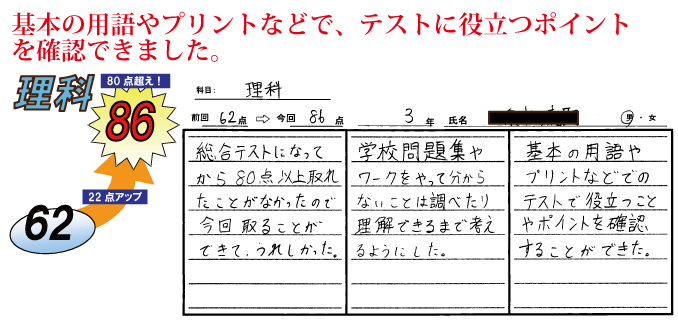 基本の用語やプリントなどで、テストに役立つポイント
を確認できました。
理科
80点超え！
86
22点アップ
62
科目： 理科
前回 62点 ⇨ 今回 86点 3年 氏名 男・女
総合テストになって
から80点以上取れ
たことがなかったので
今回取ることが
できて、うれしかった。
学校問題集や
ワークをやって分から
ないことは調べたり
理解できるまで考え
るようにした。
基本の用語や
プリントなどでの
テストで役立つこと
やポイントを確認
することができた。